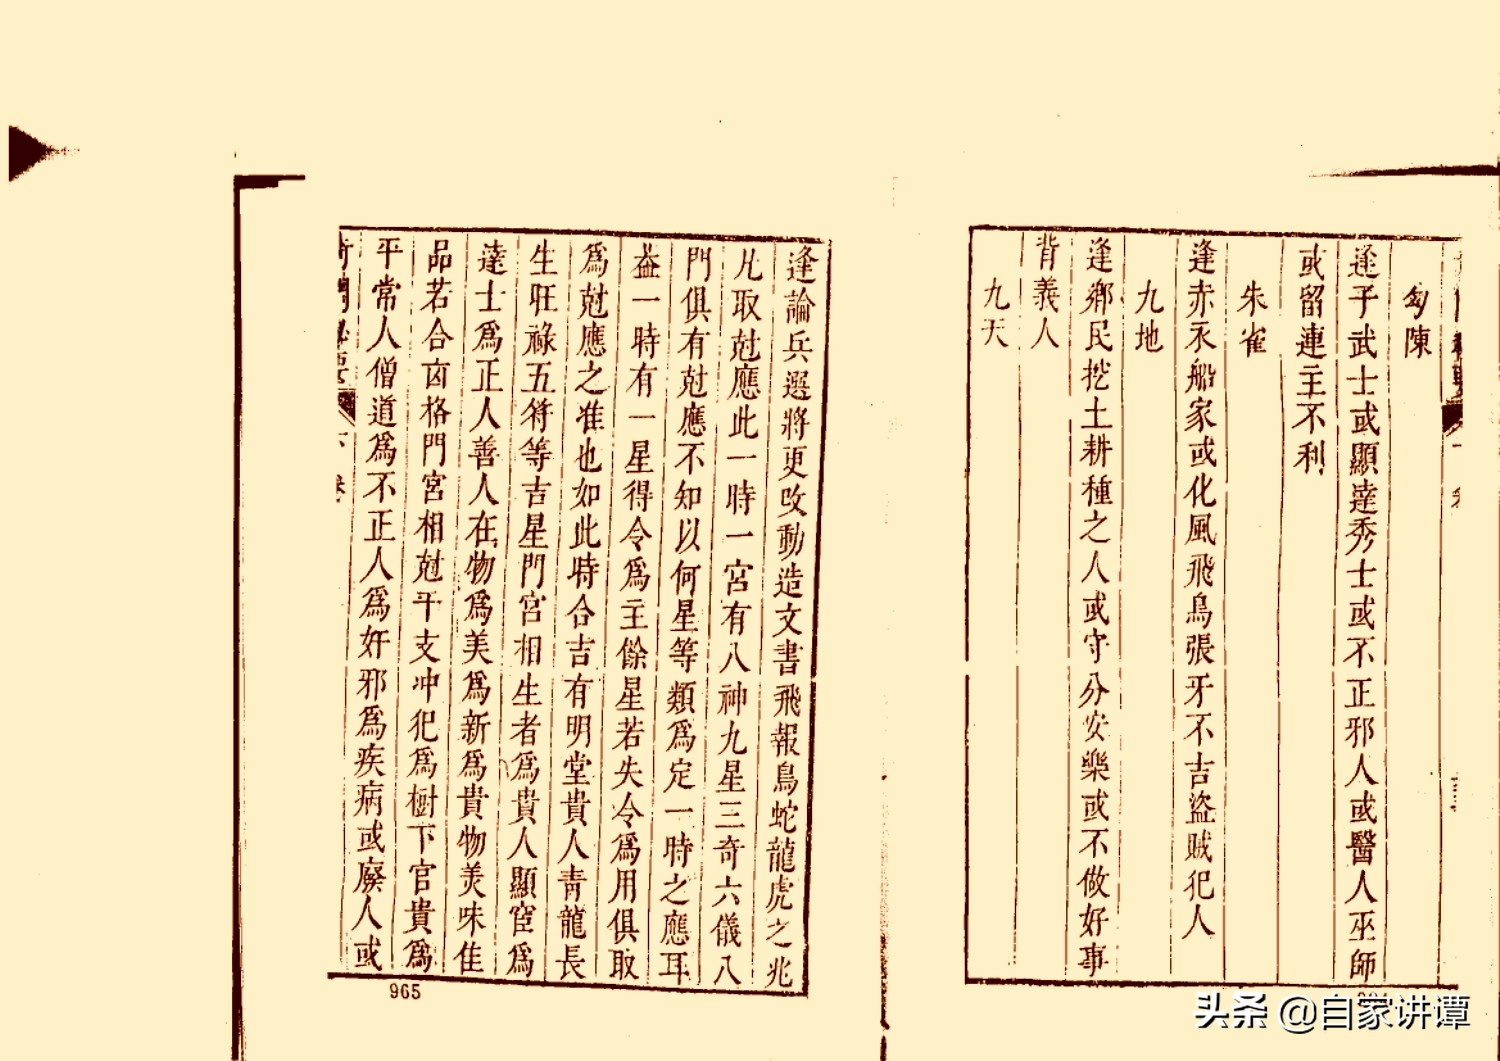 勾陳
逢子武士或顯達秀士或不正邪人或醫人巫師
或留連主不利
朱雀
逢赤衣船家或化風飛鳥張牙不吉盜賊犯人
九地
逢鄉民挖土耕種之人或守分安樂或不做好事
背義人
九天
逢論兵選將更改動造文書飛報鳥蛇龍虎之兆
凡取尅應此一時一宮有八神九星三奇六儀八
門俱有尅應不知以何星等類爲定一時之應耳
葢一時有一星得令爲主餘星若失令爲用俱取
爲尅應之准也如此時合吉有明堂貴人青龍長
生旺祿五符等吉星門宮相生者爲貴人顯宦爲
達士爲正人善人在物爲美爲新爲貴物美味佳
品若合凶格門宮相尅干支冲犯爲樹下官貴爲
平常人僧道爲不正人爲奸邪爲疾病或廢人或
965
头条 @自家讲谭